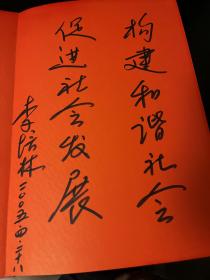 构建和谐社会
促进社会发展
李培林
二〇〇五.四.二十八